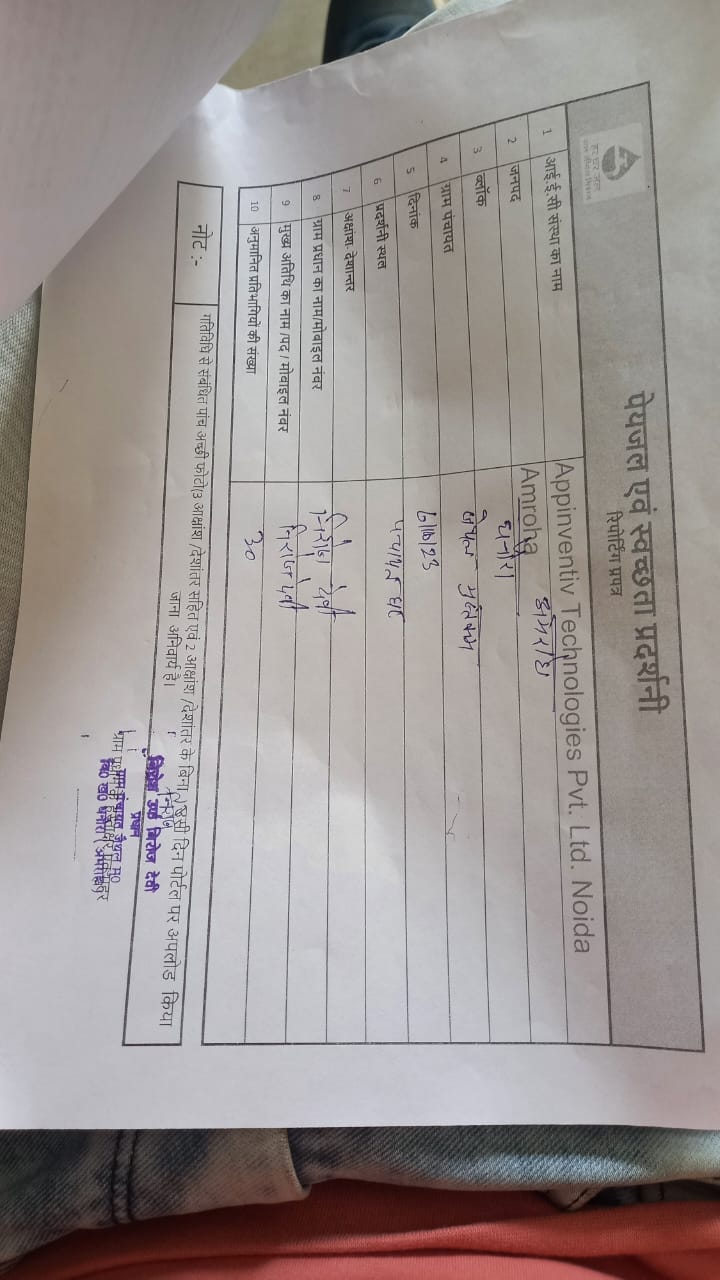 हर घर जल
जल जीवन मिशन
पेयजल एवं स्वच्छता प्रदर्शनी
रिपोर्टिंग प्रपत्र
1 आई.ई.सी संस्था का नाम Appinventiv Technologies Pvt. Ltd. Noida
2 जनपद Amroha अमरोहा
3 ब्लॉक धनौरा
4 ग्राम पंचायत
5 दिनांक
6 प्रदर्शनी स्थल पंचायत घर
7 अक्षांश- देशान्तर
8 ग्राम प्रधान का नाम/मोबाइल नंबर देवी
9 मुख्य अतिथि का नाम /पद / मोबाइल नंबर देवी
10 अनुमानित प्रतिभागियों की संख्या 30
नोट :- गतिविधि से संबंधित पांच अच्छी फोटो(3 आक्षांश /देशांतर सहित एवं 2 आक्षांश /देशांतर के बिना) उसी दिन पोर्टल पर अपलोड किया
जाना अनिवार्य है।
उर्फ देवी
प्रधान
ग्राम पंचायत
वि0 ख0 धनौरा (अमरोहा)